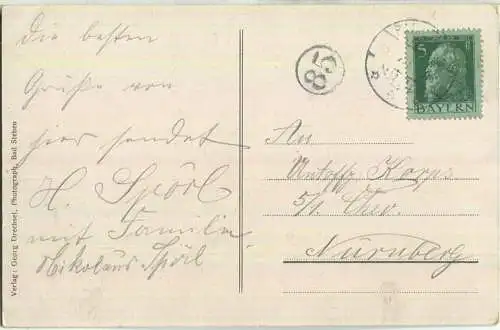 Die besten
Grüße von
hier sendet
H. Spörl
mit Familie
Nikolaus Spörl
Verlag: Georg Drechsel, Photograph, Bad Steben
85
5
BAYERN
An
Untoffz. Korps
5/1. Chev.
Nürnberg